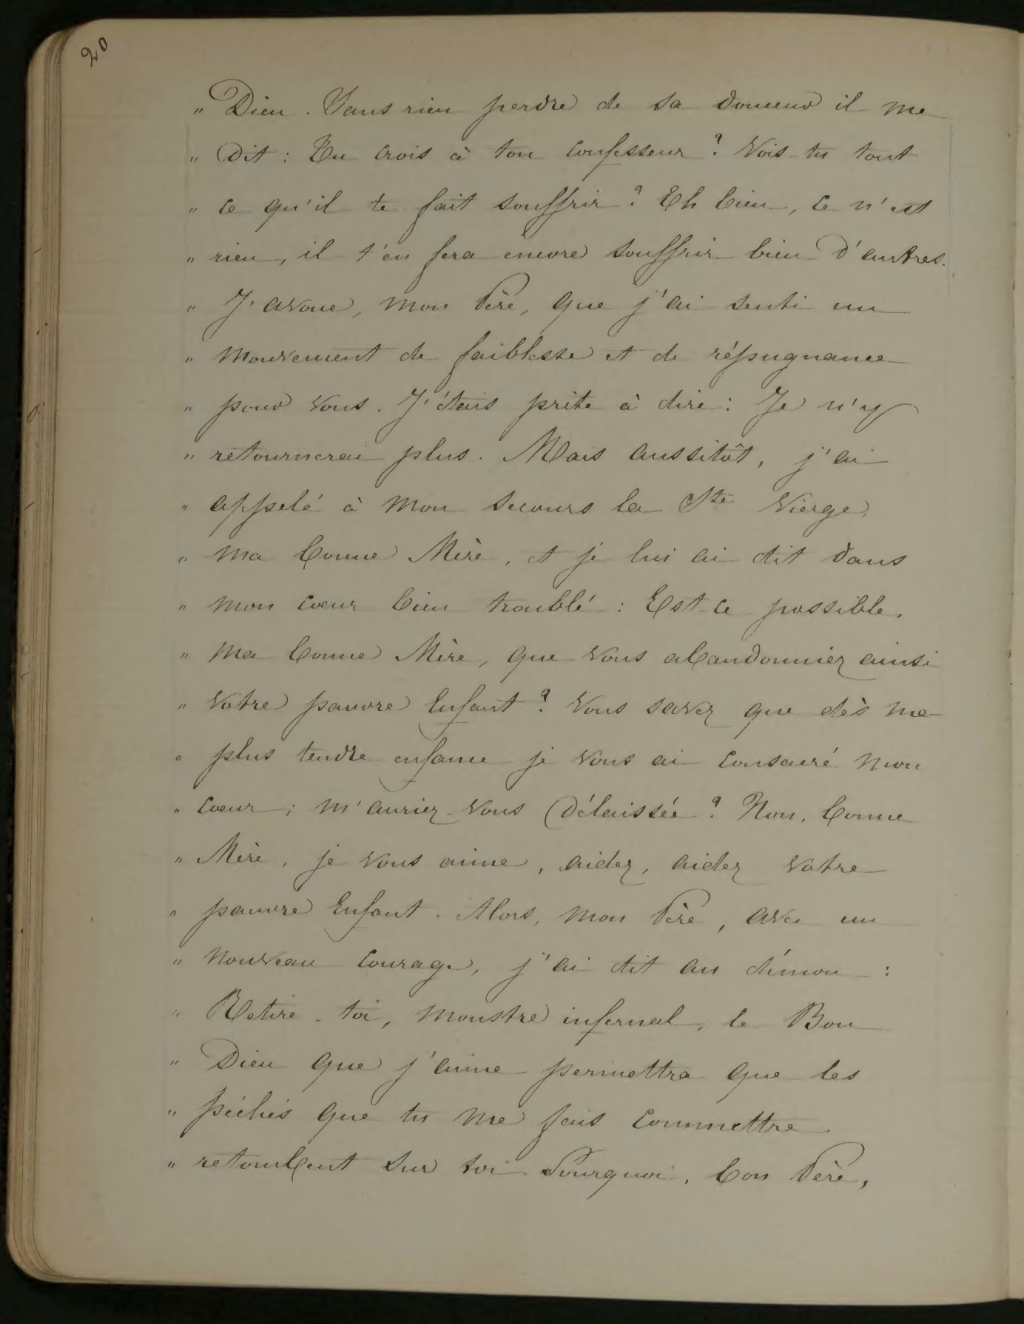 20
" Dieu. Sans rien perdre de sa douceur il me
" dit : Tu crois à ton confesseur ? Vois-tu tout
" ce qu'il te fait souffrir ? Eh bien, ce n'est
" rien, il t'en fera encore souffrir bien d'autres.
" J'avoue, mon Père, que j'ai senti un
" mouvement de faiblesse et de répugnance
" pour vous. J'étais prête à dire : Je n'y
" retournerai plus. Mais aussitôt, j'ai
" appelé à mon secours la Ste Vierge,
" ma bonne Mère, et je lui ai dit dans
" mon cœur bien troublé : Est-ce possible,
" ma bonne Mère, que vous abandonniez ainsi
" votre pauvre Enfant ? Vous savez que dès ma
" plus tendre enfance je vous ai consacré mon
" cœur ; m'auriez-vous délaissée ? Non, bonne
" Mère, je vous aime, aidez, aidez votre
" pauvre Enfant. Alors, mon Père, avec un
" nouveau courage, j'ai dit au démon :
" Retire-toi, monstre infernal, le Bon
" Dieu que j'aime permettra que les
" péchés que tu me fais commettre
" retombent sur toi. Pourquoi, bon Père,